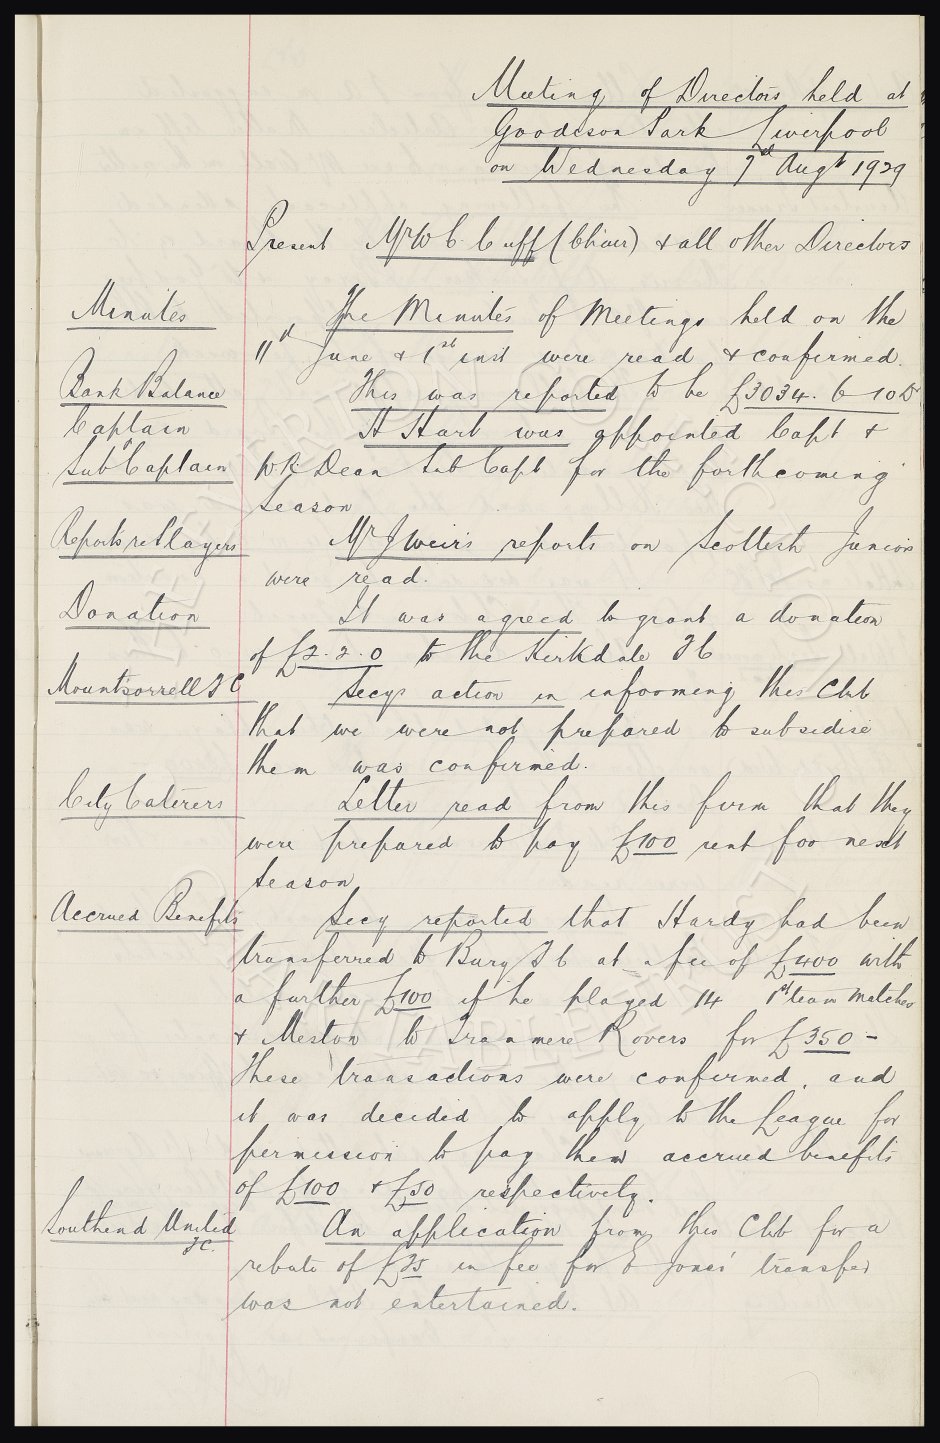 Meeting of Directors held at
Goodison Park Liverpool
on Wednesday 7th Augt 1929
Present Mr W C Cuff (Chair) & all other Directors
Minutes The Minutes of Meetings held on the
11th June & 1st inst were read & confirmed.
Bank Balance This was reported to be £3034. 6 10 D
Captain H Hart was appointed Capt &
Sub Captain W R Dean Sub Capt for the forthcoming
season
Reports re Players Mr J Weir's reports on Scottish Juniors
were read.
Donation It was agreed to grant a donation
of £2. 2. 0 to the Kirkdale F C
Mountsorrell F C Secys action in informing this Club
that we were not prepared to subsidise
them was confirmed.
City Caterers Letter read from this firm that they
were prepared to pay £100 rent for next
season
Accrued Benefits Secy reported that Hardy had been
transferred to Bury F C at a fee of £400 with
a further £100 if he played 14 1st team matches
& Meston to Tranmere Rovers for £350 -
These transactions were confirmed, and
it was decided to apply to the League for
permission to pay them accrued benefits
of £100 & £50 respectively.
Southend United An application from this Club for a
F C. rebate of £25 in fee for Jones' transfer
was not entertained.